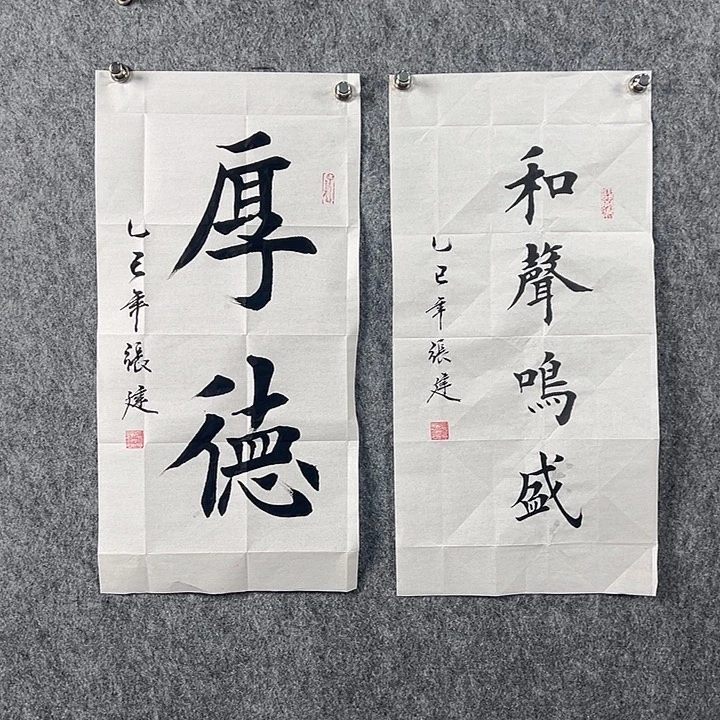 厚德
乙巳年張建
和聲鳴盛
乙巳年張建